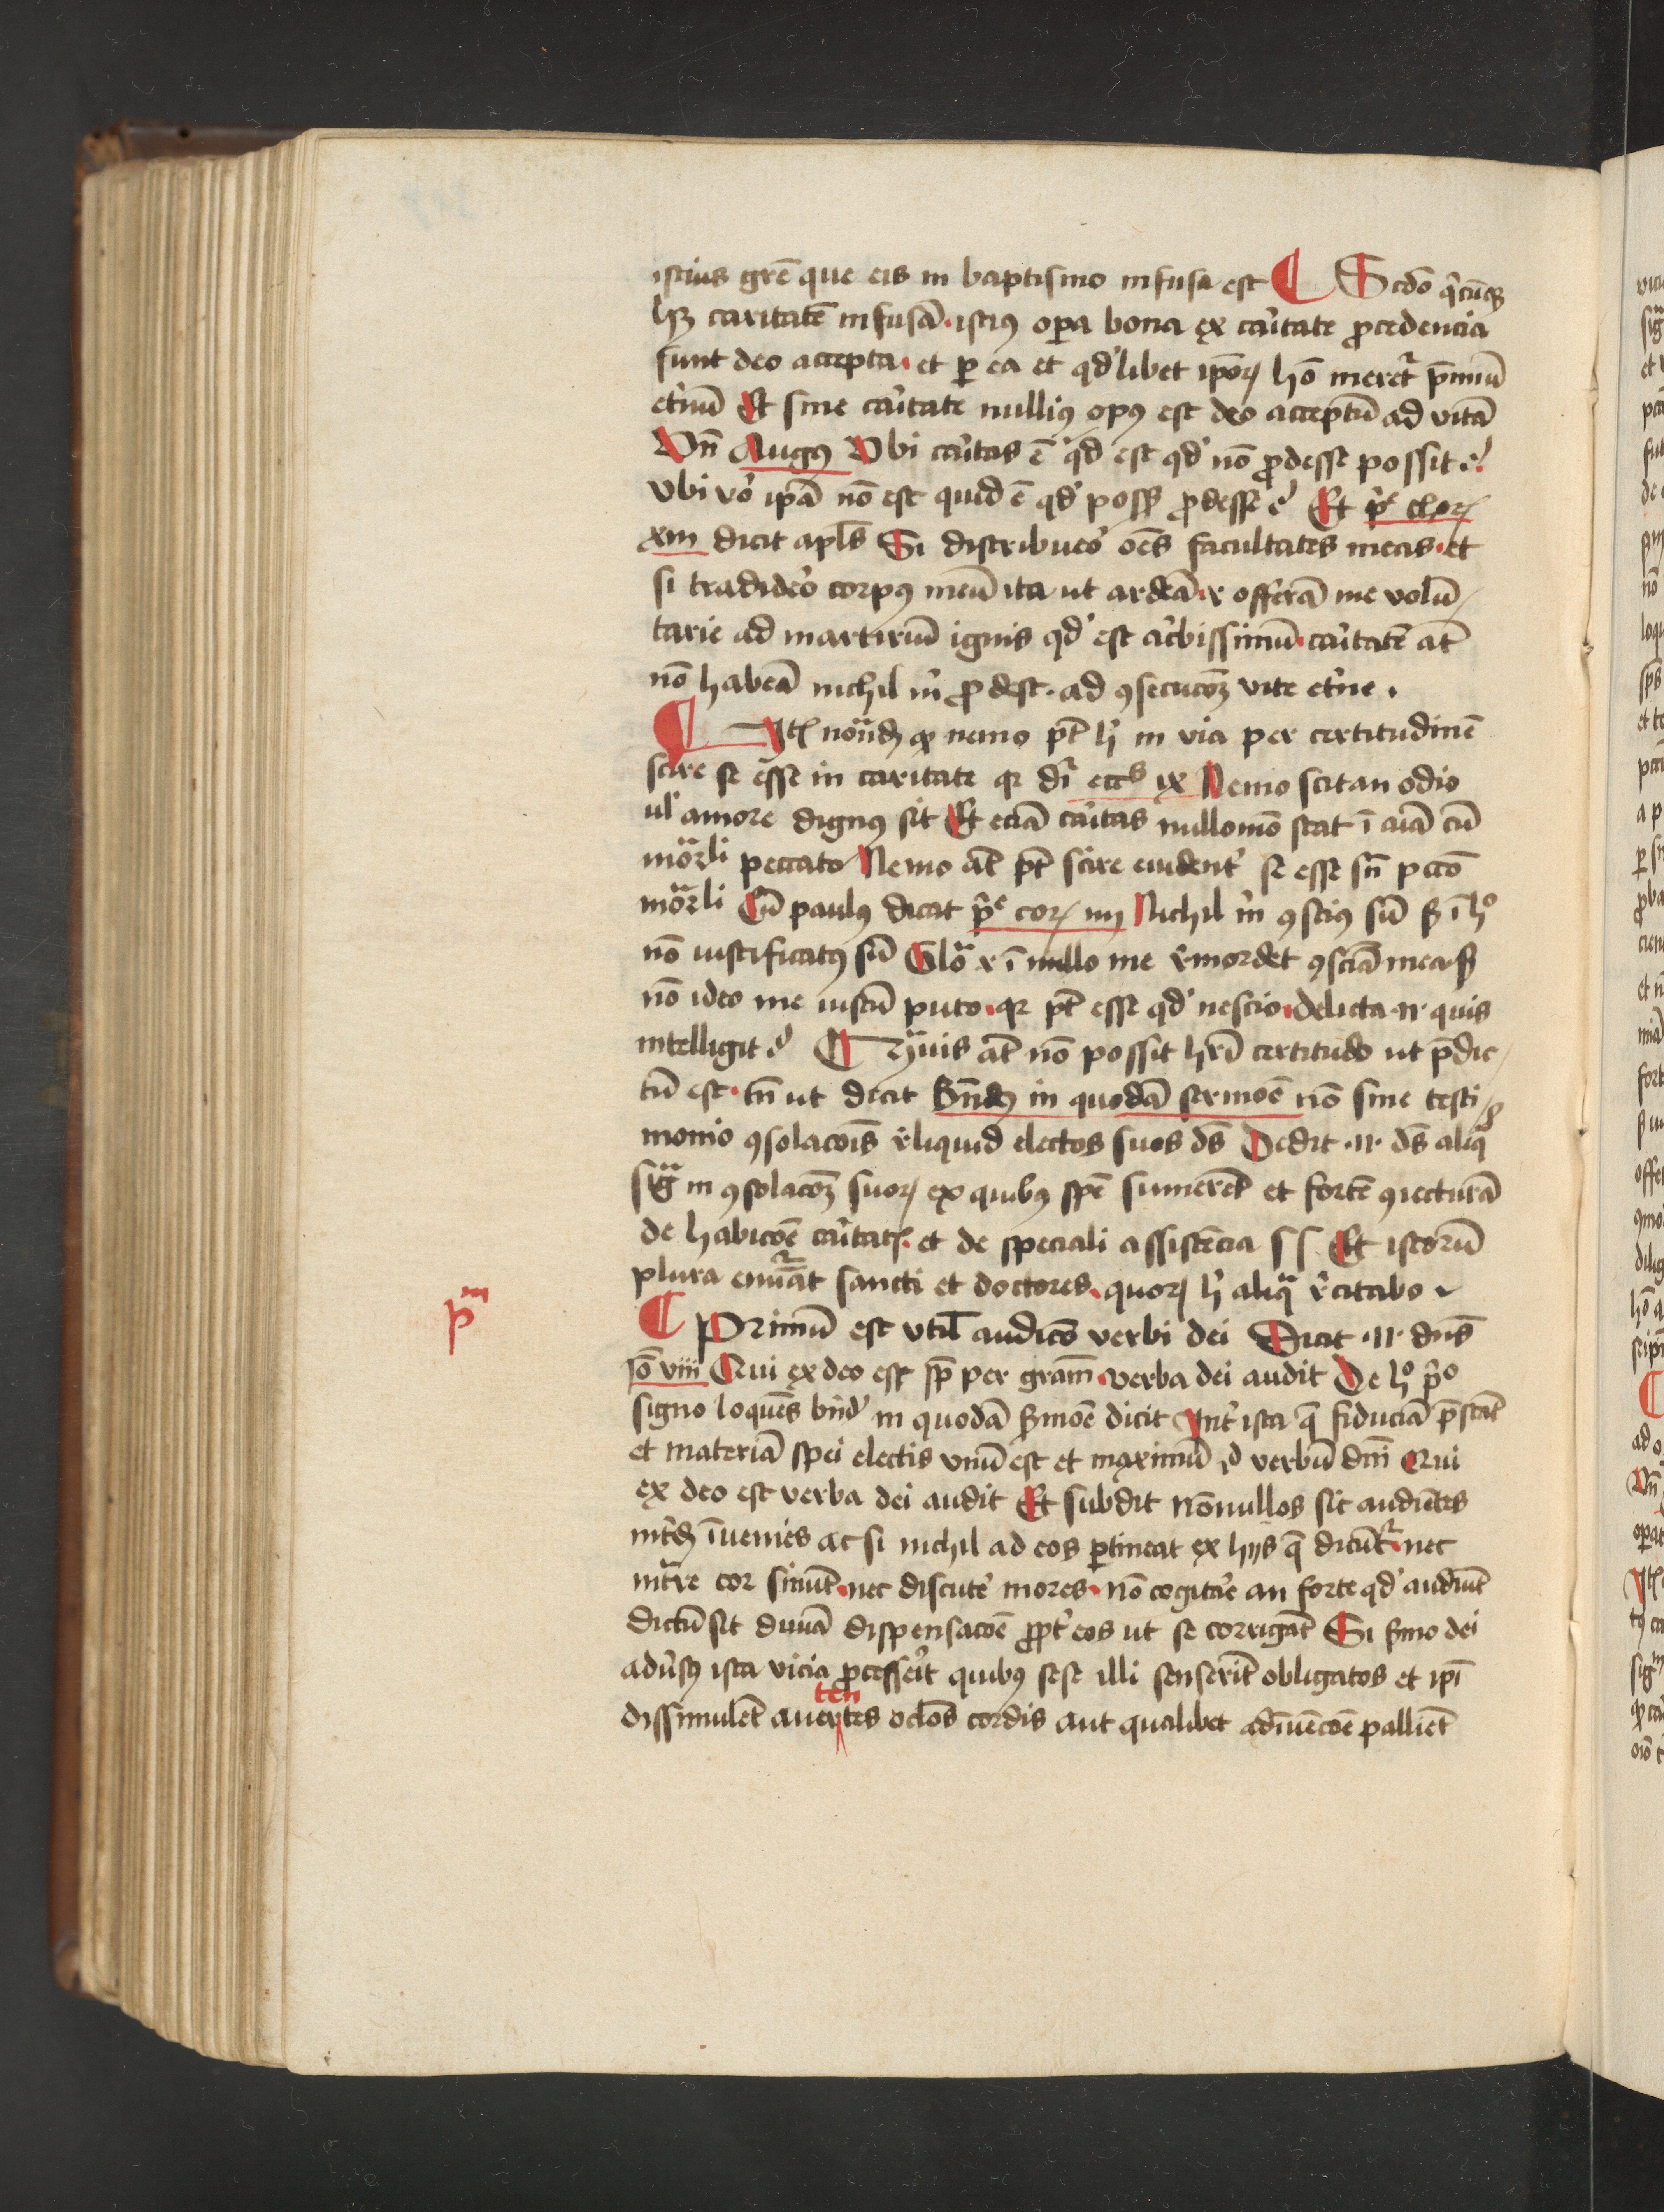 istius gr̄e que eis in baptismo infusa est ¶ Scdō q̄cūqꝫ
hꝫ caritatē infusā · istiꝰ oꝑa bona ex caͥtate ꝓcedencia
sunt deo accepta · et ꝑ ea et qd' libet ip̄oꝝ hō meret᷑ p̄miū
et'nū Et sine caͥtate nulliꝰ opꝰ est deo acceptū ad vitā
Vn̄ Augꝰ Vbi caͥtas ē qͥd est qd' nō ꝓdesse possit ?
vbi v'o ip̄a nō est quid ē qd' possꝫ ꝓdesse ? Et pͥᵉ choꝝ
xiii dicit apl̄s Si distribueo' oēs facultates meas · et
si tradideo' corpꝰ meū ita ut ardeā · ⁊ offerā me volū
tarie ad martiriū ignis qd' est ac'bissimū · caͥtatē at̄
nō habeā nichil m' ꝓdest · ad ꝯsecucōꝫ vite et'ne .
¶ Itē notandꝫ ꝙ nemo pt̄ hͥ in via per certitudinē
scire se esse in caritate qꝛ dr̄ eccˢ ix Nemo scit an odio
ul' amore dignꝰ sit Et eciā caͥtas nullomō stat ī aīa cū
mor̄li peccato Nemo at̄ pt̄ scire euident' se esse sn̄ pccō
mor̄li Cū paulꝰ dicat pͥᵉ coꝝ iiij Nichil m' ꝯsciꝰ sū sꝫ ī hᵒ
nō iustificatꝰ sū Gloᵃ ⁊ ī nullo me r'mordet ꝯsciā mea · sꝫ
nō ideo me iustū puto · qꝛ pt̄ esse qd' nescio · delicta ·n· quis
intelligit ? ¶ Quis at̄ nō possit hr̄i certitudo ut p̄dic
tū est · tn̄ ut dicit Bn̄dꝰ in quodā sermoē nō sine testi
monio ꝯsolacōis r'liquid electos suos ds̄ Dedit ·n· ds̄ aliqᵃ
sigᵃ in ꝯsolacōꝫ suoꝝ ex quibꝰ spē sumerēt et fortē ꝯiecturā
de habicōe caͥtatꝭ · et de speciali assistēcia ss Et istorū
plura enūāt sancti et doctores · quoꝝ hͥ aliqᵃ r'citabo
pᵐ
¶ Primū est vtil' audicō verbi dei Dicit ·n· dn̄s
Jo viii Qui ex deo est sꝫ per grām · verba dei audit De hᵒ pͥᵒ
signo loquēs bn̄d' in quodā s'moē dicit Int' ista q̄ fiduciā p̄stāt
et materiā spei electis vnū est et maximū · verbū dn̄i Qui
ex deo est verba dei audit Et subdit nōnullos sic audiētes
int'dꝫ īuenies ac si nichil ad eos ꝑtineat ex hijs q̄ dicūt᷑ · nec
int̄re cor sinūt · nec discute' mores · nō cogitāe an forte qd' audiūt
dictū sit diuīa dispensacōe ꝓpt' eos ut se corrigāt Si s'mo dei
adu'sꝰ ista vicia ꝓcesse'it quibꝰ sese illi senserīt obligatos et ip̄i
dissimulēt auertentes oclōs cordis aut qualibet adīuēcōe palliēt